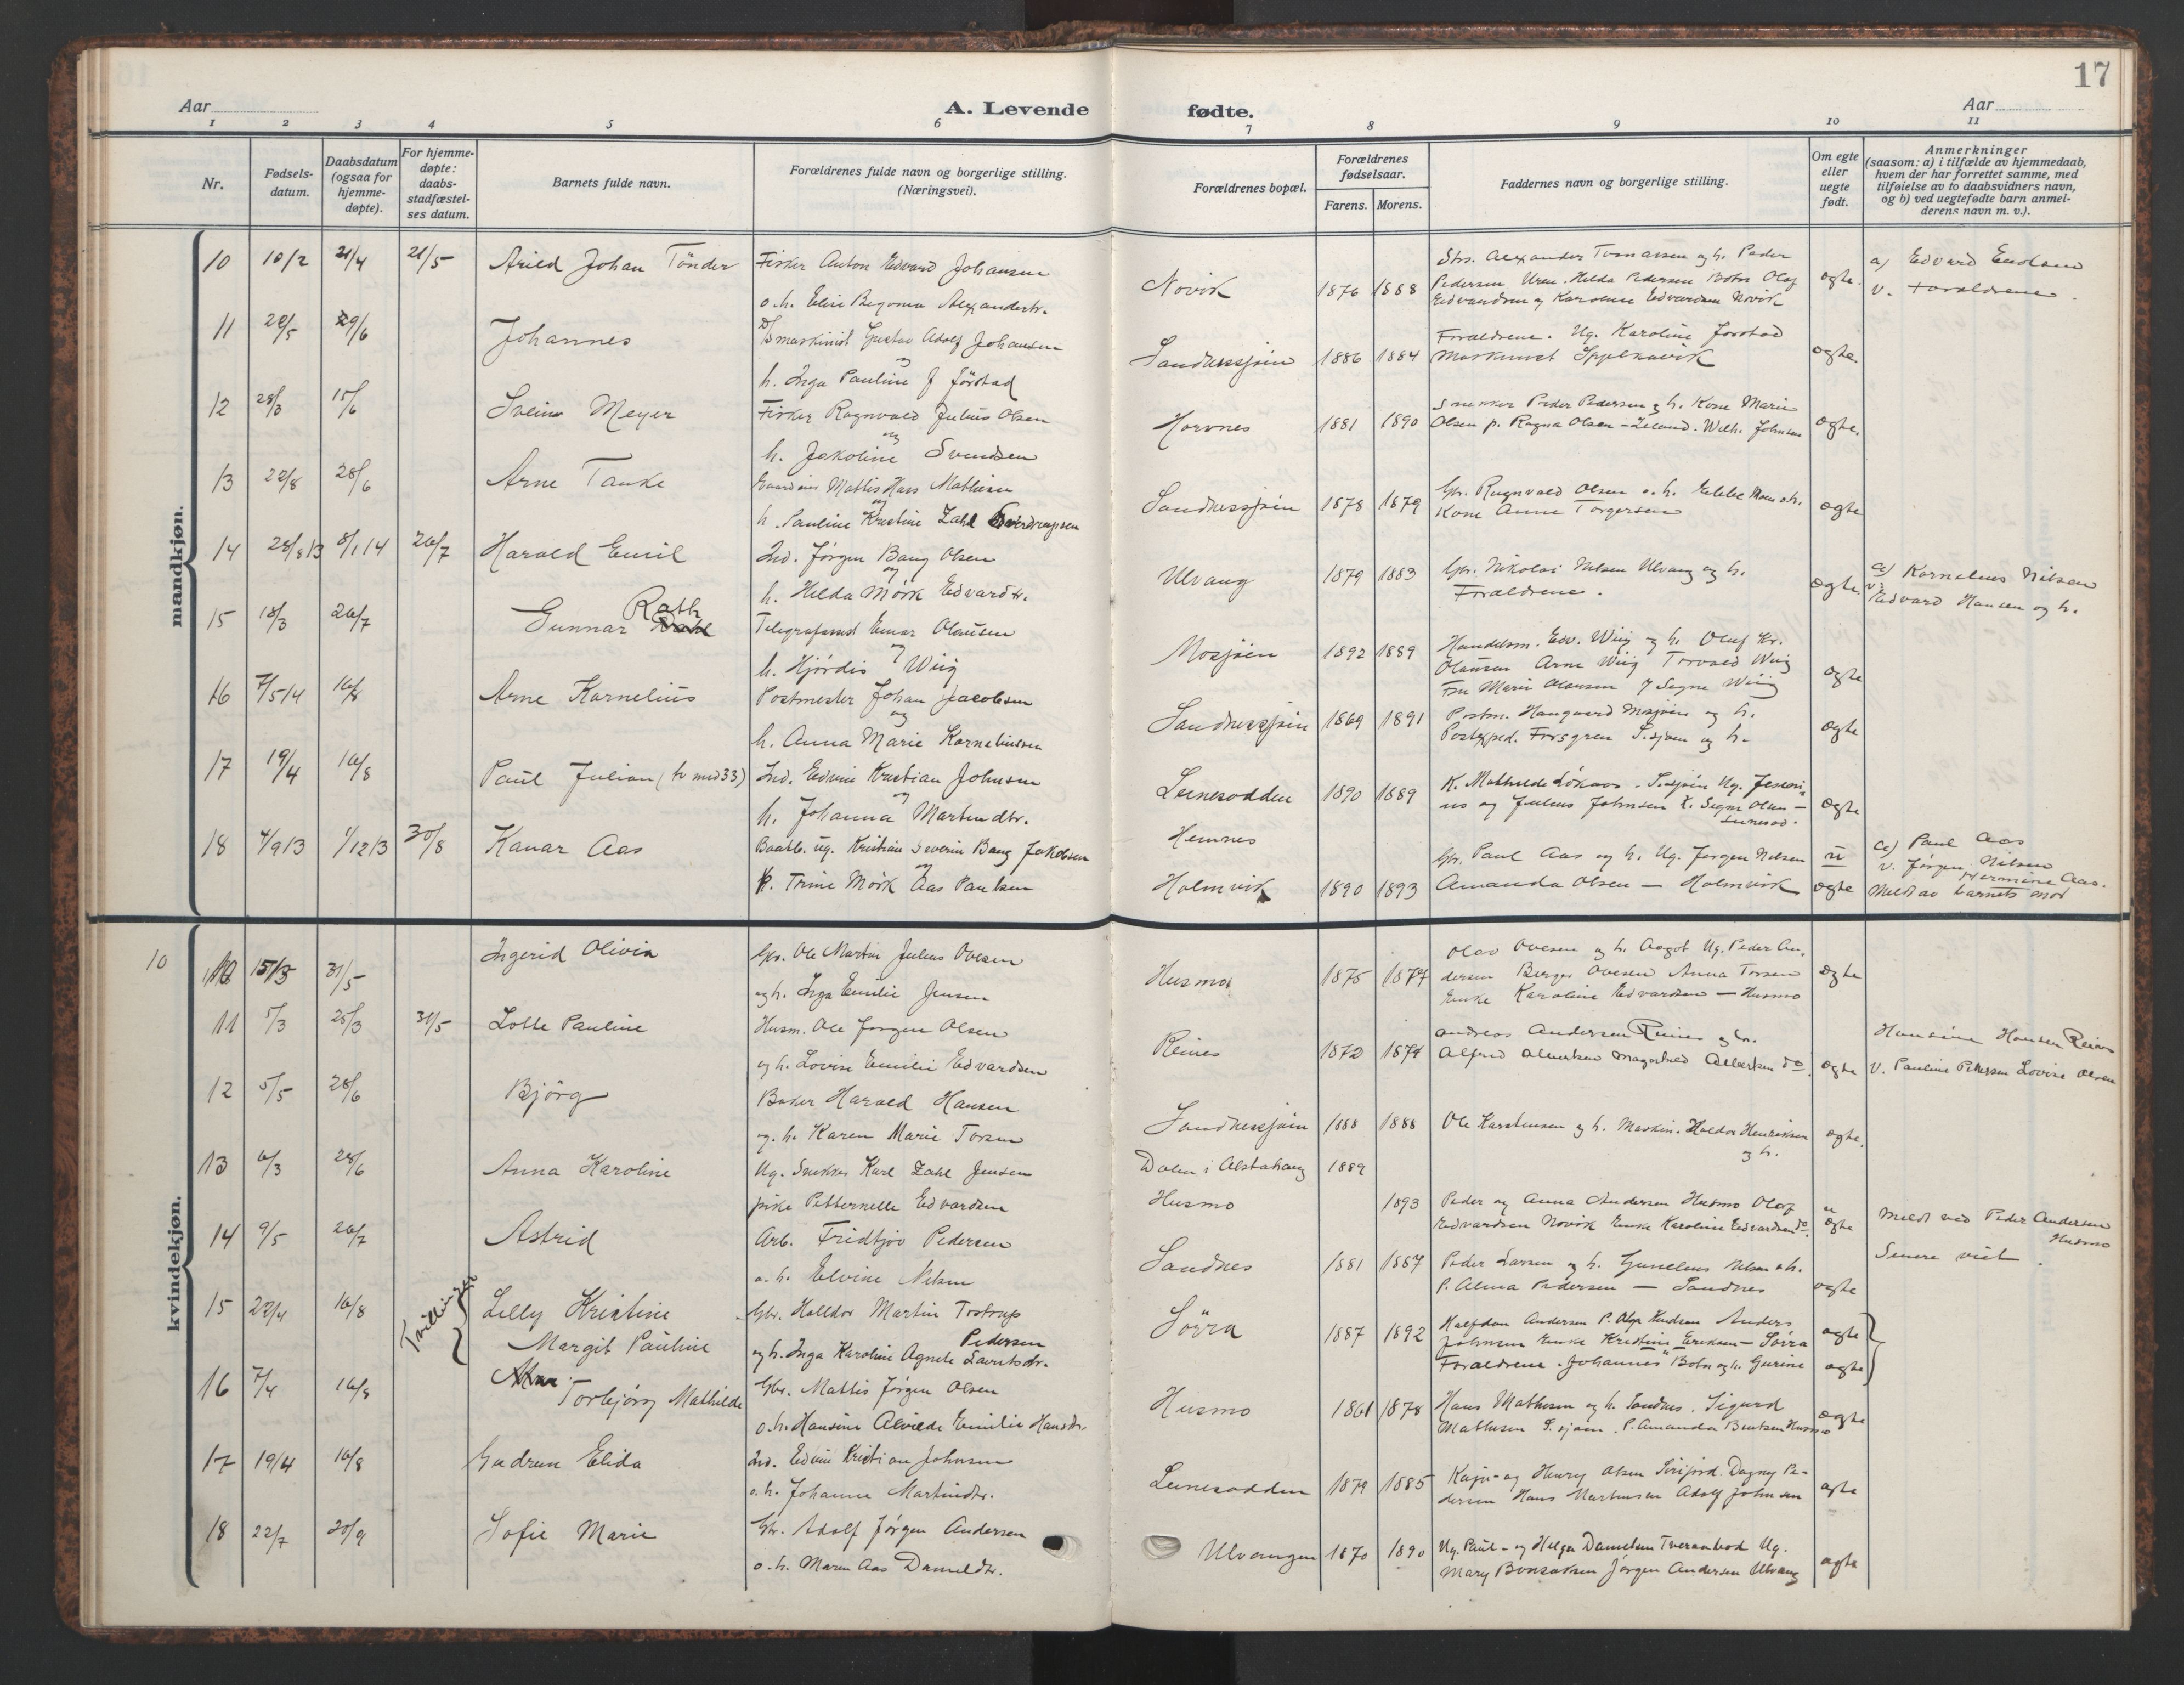 17
Aar
A. Levende fødte.
Aar
1 2 3 4 5 6 7 8 9 10 11
Nr.
Fødsels-datum.
Daabsdatum (ogsaa for hjemme-døpte).
For hjemme-døpte: daabs-stadfæstel-ses datum.
Barnets fulde navn.
Forældrenes fulde navn og borgerlige stilling. (Næringsvei).
Forældrenes bopæl.
Forældrenes fødselsaar.
Farens. Morens.
Faddernes navn og borgerlige stilling.
Om egte eller uegte født.
Anmerkninger
(saasom: a) i tilfælde av hjemmedaab,
hvem der har forrettet samme, med
tilføielse av to daabsvidners navn,
og b) ved uegtefødte barn anmel-
derens navn m. v.).
mandkjøn.
10 10/2 21/4 21/5 Arild Johan Tönder Fisker Anton Edvard Johansen
Novik 1876 1888 Pedersen Hilda Pedersen Olaf
Edvardsen og Karoline Edvardsen Novik egte.
a) Edvard
v. Forældrene.
11 20/5 29/6 Johannes maskinist Gustav Adolf Johansen
og
h. Inga Pauline J Jörstad
Sandnessjöen 1886 1884 Forældrene. Ug. Karoline Jorstad
egte.
12 15/6 Svein Meyer Fisker Ragnvald Julius Olsen
og
h. Jakoline Svendsen
Horvnes 1881 1890 Snekker Peder Pedersen og h. Kone Marie
Olsen p. Ragna Olsen Wilh. Johnsen egte.
13 28/6 Arne Tanke Mattis Hans Mathisen
og
h. Pauline Kristine Zahl
Sandnessjöen 1878 1879 Gbr. Ragnvald Olsen o.h.
Kone Anne Torgersen egte
14 8/1 14 26/7 Harald Emil Ind. Jørgen Bang Olsen
og
h. Hilda Mörk Edvardtr.
Ulvang 1879 1883 Gbr. Nikolai Nilsen Ulvang og h.
Forældrene. egte
a) Kornelius Nilsen
v. Edvard Hansen og h.
15 18/3 26/7 Gunnar Rath Telegrafasst Einar Olausen
og
h. Hjördis Wiig
Mosjöen 1892 1889 Handelsm. Edv. Wiig og h. Oluf Kr.
Olausen Arne Wiig Torvald Wiig
Fru Marie Olausen Signe Wiig egte
16 7/5 14 16/8 Arne Kornelius Postmester Johan Jacobsen
og
h. Anna Marie Korneliussen
Sandnessjöen 1869 1891 Postm. Haugaard Mosjöen og h.
Postexped. Forsgren S.sjöen og h. egte
17 19/4 16/8 Paul Julian Ind. Edvin Kristian Johnsen
og
h. Johanna Martindtr.
Leinesodden 1890 1889 K. Mathilde S.sjöen Ug.
og Julius Johnsen K. Signe Olsen egte
18 4/9 13 1/12 13 30/8 Kanar Aas Kristian Severin Bang Jakobsen
og
p. Trine Mörk Aas Paulsen
Hemnes
Holmvik 1890 1893 Gbr. Paul Aas og h. Ug. Jørgen Nilsen
Amanda Olsen — Holmvik u egte
a) Paul Aas
v. Jörgen Nilsen
Hermine Aas.
Meldt av barnets mor
kvindekjøn.
10 15/3 31/5 Ingerid Olivia Gbr. Ole Martin Julius Ovesen
og h. Inga Emilie Jensen
Husmo 1875 1877 Olav Ovesen og h. Aagot Ug. Peder An-
dersen Birger Ovesen Anna
Enke Karoline Edvardsen — Husmo egte
11 5/3 25/3 31/5 Lotte Pauline Husm. Ole Jørgen Olsen
og h. Lovise Emilie Edvardsen
Reines 1872 1874 Andreas Andersen Reines og h.
Alfred Albertsen Magnhild Albertsen do. egte
Hansine Hansen Reines
v. Pauline Pettersen Lovise Olsen
12 5/5 28/6 Björg Baker Harald Hansen
og h. Karen Marie
Sandnessjöen 1888 1888 Ole Karstensen og h. Maskin. Haldor Henriksen
og h. egte.
13 6/3 28/6 Anna Karoline Ug. Snekker Karl Zahl Jensen
pike Petternelle Edvardsen
Dalen i Alstahaug 1889
Husmo 1893 Peder og Anna Andersen Husmo Olaf
Edvardsen Novik Enke Karoline Edvardsen do. u egte
Meldt ved Peder Andersen
Husmo
Senere viet.
14 9/5 26/7 Astrid Arb. Fridtjov Pedersen
o.h. Elvine Nilsen
Sandnes 1881 1887 Peder Larsen og h. Gunelius Nilsen o.h.
P. Alma Pedersen — Sandnes egte
15 22/4 16/8 Tvillinger Lilly Kristine Gbr. Halldor Martin Trotrup
Pedersen
Margit Pauline og h. Inga Karoline Agnete Lauritsdtr.
Sörra 1887 1892 Halfdan Andersen P. Olga Knudsen Anders
Johnsen Enke Kristine Eriksen — Sörra egte
Forældrene. Johannes Botn og h. Gurine egte
16 7/4 16/8 Torbjörg Mathilde Gbr. Mattis Jørgen Olsen
o.h. Hansine Alvilde Emilie Hansdtr.
Husmo 1861 1878 Hans Mathisen og h. Sandnes. Sigurd
Mathisen S.sjöen. P. Amanda Bentsen Husmo egte
17 19/4 16/8 Gudrun Elida Ind. Edvin Kristian Johnsen
o.h. Johanne Martindtr.
Leinesodden 1879 1885 Kaja og Henry Olsen Dagny Pe-
dersen Hans Martinsen Adolf Johnsen egte
18 22/7 20/9 Sofie Marie Gbr. Adolf Jørgen Andersen
o.h. Maren Aas Danieldtr.
Ulvangen 1870 1890 Ug. Paul og Helga Danielsen Ug.
Mary Jörgen Andersen Ulvang egte